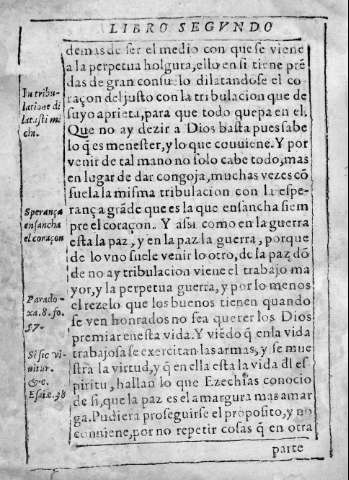 LIBRO SEGVNDO
demas de ser el medio con que se viene
a la perpetua holgura, ello en si tiene prẽ
das de gran consuelo dilatandose el co-
raçon del justo con la tribulacion que de
suyo aprieta, para que todo quepa en el.
Que no ay dezir a Dios basta pues sabe
lo q̃ es menester, y lo que conuiene. Y por
venir de tal mano no solo cabe todo, mas
en lugar de dar congoja, muchas vezes cõ
suela la misma tribulacion con la espe-
rança grãde que es la que ensancha siem
pre el coraçon. Y assi como en la guerra
esta la paz, y en la paz la guerra, porque
de lo vno suele venir lo otro, de la paz dõ
de no ay tribulacion viene el trabajo ma
yor, y la perpetua guerra, y por lo menos
el rezelo que los buenos tienen quando
se ven honrados no fea querer los Dios
premiar en esta vida. Y viẽdo q̃ en la vida
trabajosa se exercitan las armas, y se mue
stra la virtud, y q̃ en ella esta la vida dl es
piritu, hallan lo que Ezechias conocio
de si, que la paz es el amargura mas amar
ga. Pudiera proseguirse el proposito, y no
conuiene, por no repetir cosas q̃ en otra
parte
In tribu-
latione di
latasti mi
chi.
Sperança
ensancha
el coraçon
Parado-
xa. 8. fo.
57.
Si sic vi-
uitur.
&c.
Esaix. 38